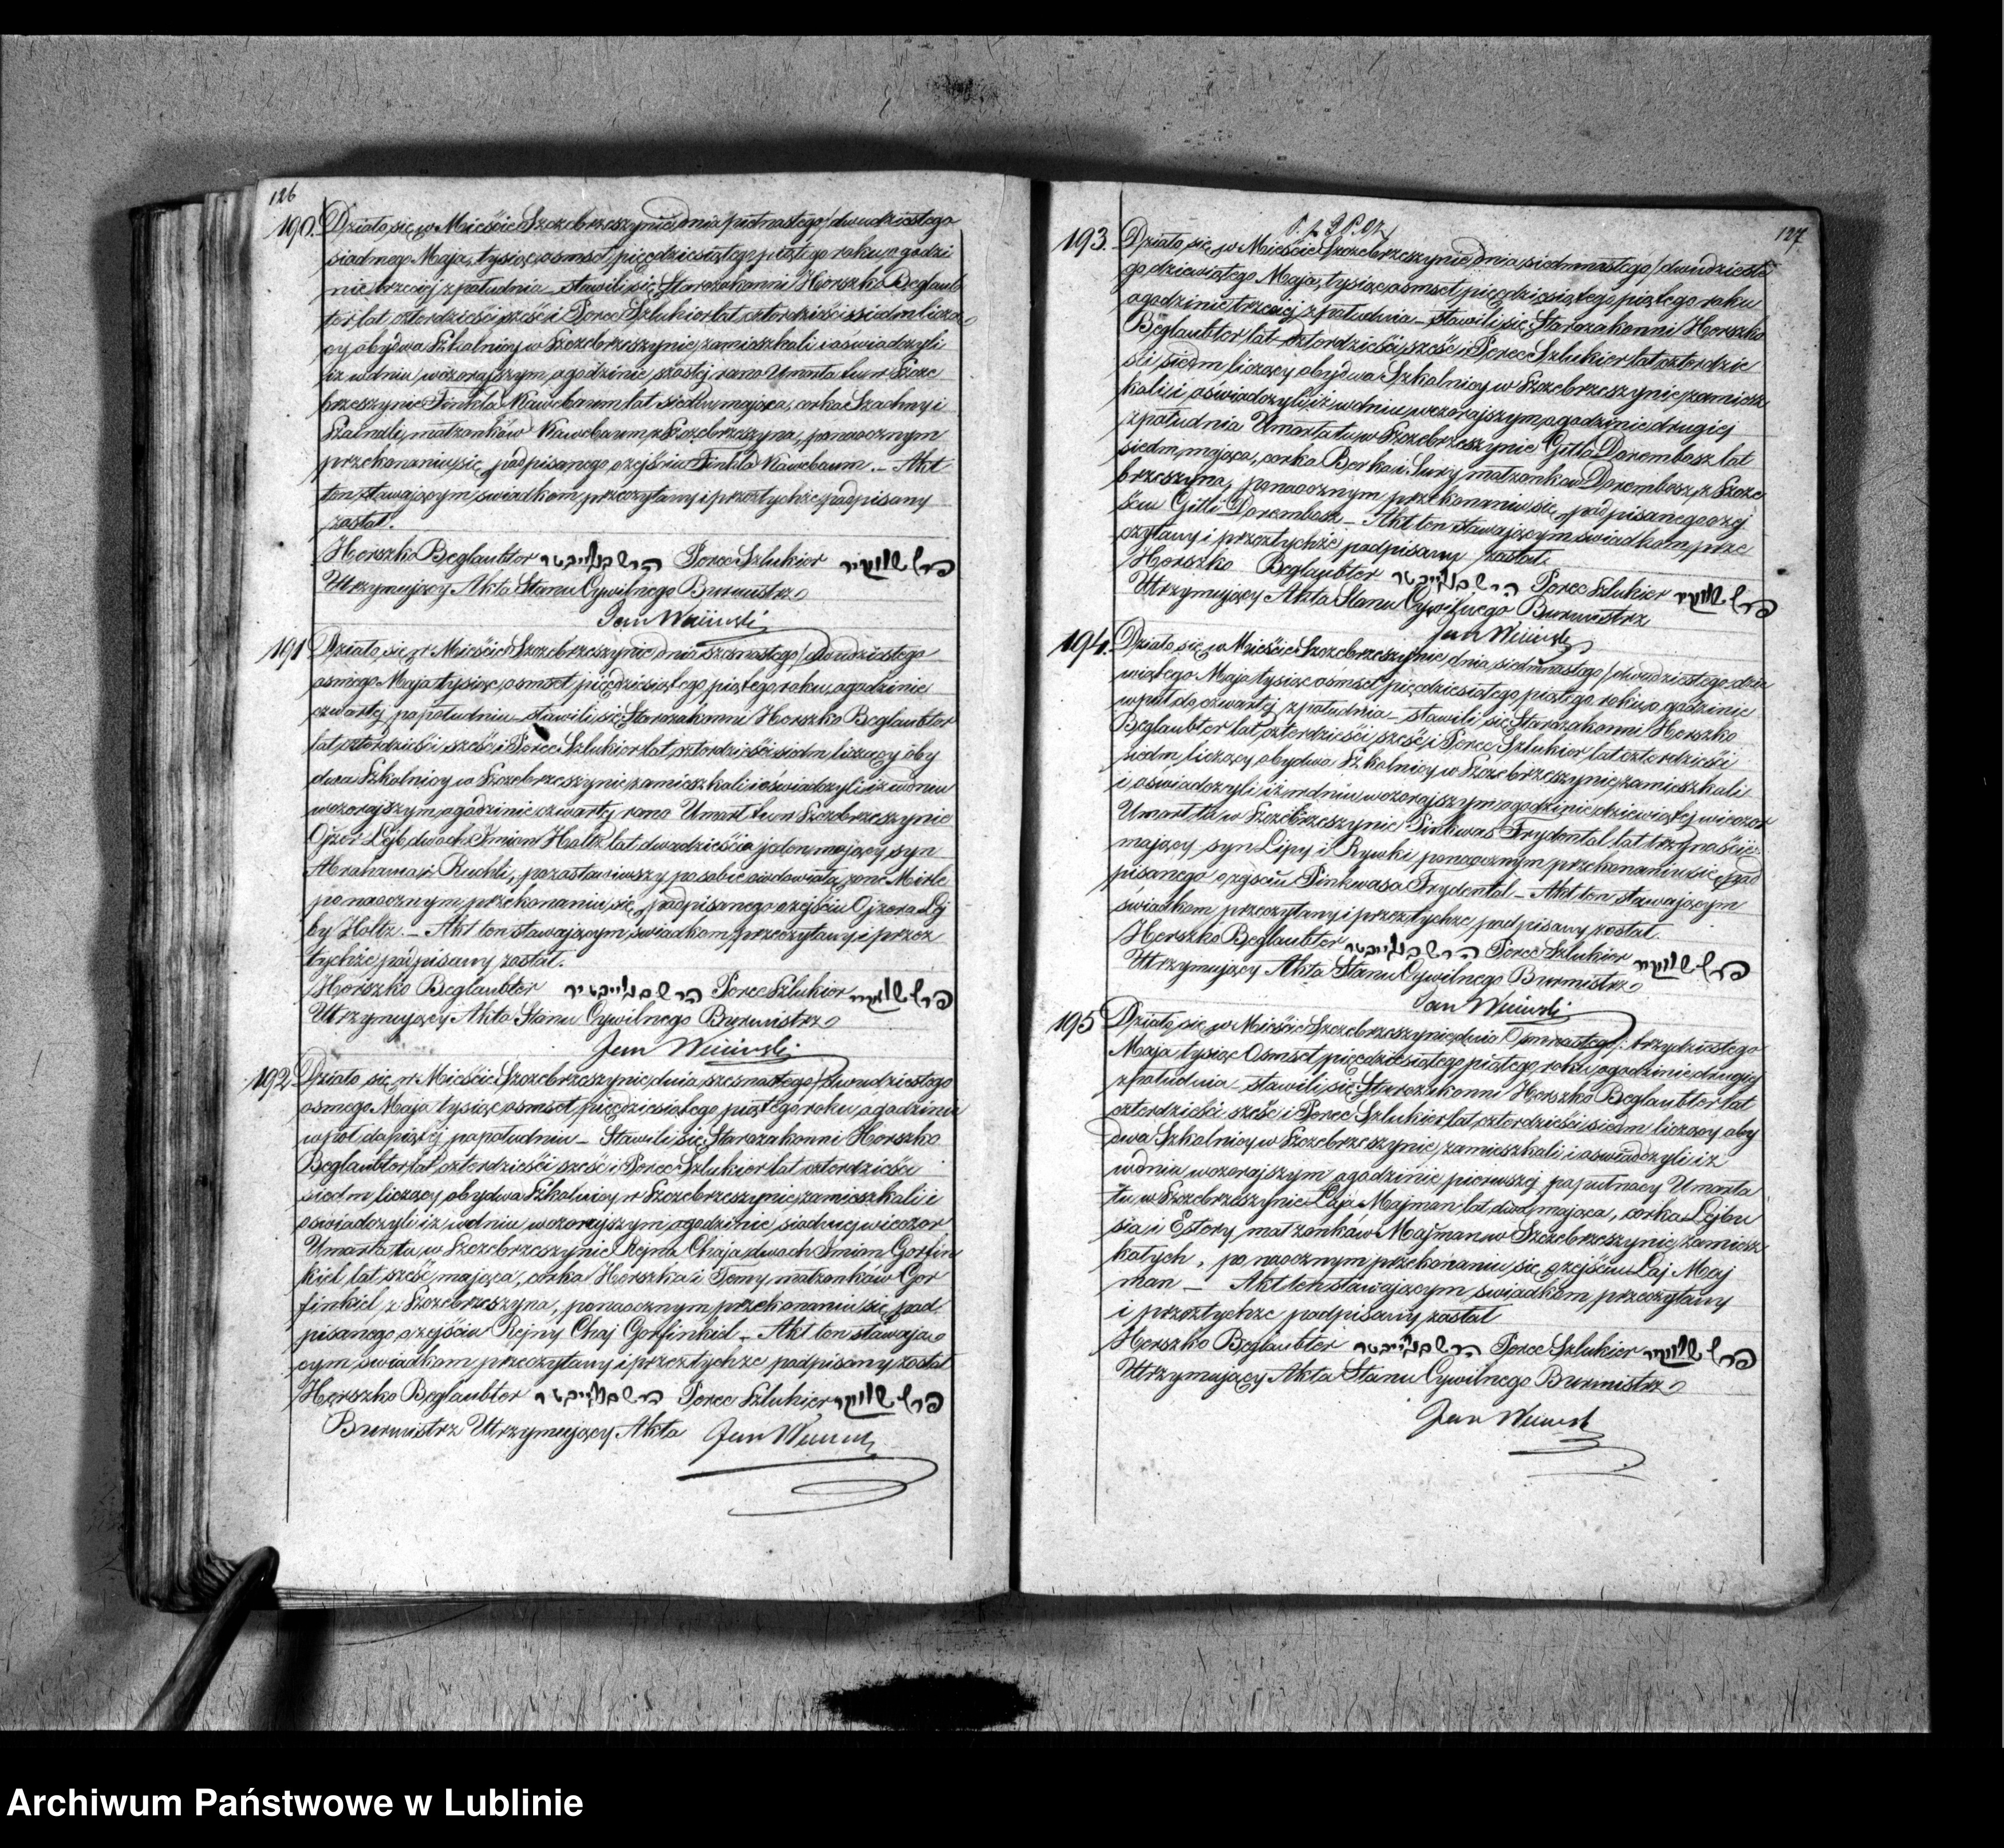 126
190. Działo się w Mieście Szczebrzeszynie dnia piętnastego/dwudziestego
siódmego Maja, tysiąc osmset pięćdziesiątego piątego roku o godzi
nie trzeciej z południa – stawili się Starozakonni Herszko Beglaub
ter lat czterdzieści sześć i Perec Szlukier lat czterdzieści siedm licza
cy obydwa Szkolnicy w Szczebrzeszynie zamieszkali i oświadczyli
iż w dniu wczorajszym o godzinie szóstej rano Umarła tu w Szcze
brzeszynie Finkla Kawebaum lat siedm mająca, corka Szachny i
małżonków Kawebaum z Szczebrzeszyna, po naocznym
przekonaniu się podpisanego o zejściu Finkla Kawebaum. – Akt
ten stawającym świadkom przeczytany i przez tychże podpisany
został.
Herszko Beglaubter הרש בגלייבטר Perec Szlukier פרץ שלוקיר
Utrzymujący Akta Stanu Cywilnego Burmistrz
Jan
191 Działo się w Mieście Szczebrzeszynie dnia szesnastego/dwudziestego
osmego Maja tysiąc osmset pięćdziesiątego piątego roku o godzinie
czwartej po południu – stawili się Starozakonni Herszko Beglaubter
lat czterdzieści sześć i Perec Szlukier lat czterdzieści siedm liczący oby
dwa Szkolnicy w Szczebrzeszynie zamieszkali i oświadczyli iż w dniu
wczorajszym o godzinie czwartej rano Umarł tu w Szczebrzeszynie
Ojzer Lejb dwóch Imion Holtz lat dwadzieścia jeden mający syn
Abrahama i Ruchli, pozostawiwszy po sobie owdowiałą żonę Mirlę
po naocznym przekonaniu się podpisanego o zejściu Ojzera Lej
by Holtz. – Akt ten stawającym świadkom przeczytany i przez
tychże podpisany został.
Herszko Beglaubter הרש בגלייבטר Perec Szlukier פרץ שלוקיר
Utrzymujący Akta Stanu Cywilnego Burmistrz
Jan
192 Działo się w Mieście Szczebrzeszynie dnia szesnastego/dwudziestego
osmego Maja tysiąc osmset pięćdziesiątego piątego roku o godzinie
wpół do piątej po południu – Stawili się Starozakonni Herszko
Beglaubter lat czterdzieści sześć i Perec Szlukier lat czterdzieści
siedm liczący obydwa Szkolnicy w Szczebrzeszynie zamieszkali i
oświadczyli iż w dniu wczorajszym o godzinie siódmej wieczór
Umarła tu w Szczebrzeszynie Rejna Chaja dwóch Imion Gorfin
kiel lat sześć mająca, corka Herszka i Temy małżonków Gor
finkiel z Szczebrzeszyna, po naocznym przekonaniu się pod
pisanego o zejściu Rejny Chaj Gorfinkiel – Akt ten stawają
cym świadkom przeczytany i przez tychże podpisany został
Herszko Beglaubter הרש בגלייבטר Perec Szlukier פרץ שלוקיר
Burmistrz Utrzymujący Akta Jan
127
193. Działo się w Mieście Szczebrzeszynie dnia siedmnastego/dwudzieste
go dziewiątego Maja, tysiąc osmset pięćdziesiątego piątego roku
o godzinie trzeciej z południa – stawili się Starozakonni Herszko
Beglaubter lat czterdzieści sześć i Perec Szlukier lat czterdzie
ści siedm liczący obydwa Szkolnicy w Szczebrzeszynie zamiesz
kali i oświadczyli, iż w dniu wczorajszym o godzinie drugiej
z południa Umarła tu w Szczebrzeszynie Gitla Dorembosz lat
siedm mająca, corka Berka i Sury małżonków Dorembosz z Szcze
brzeszyna, po naocznym przekonaniu się podpisanego o zej
ściu Gitli Dorembosz – Akt ten stawającym świadkom prze
czytany i przez tychże podpisany został.
Herszko Beglaubter הרש בגלייבטר Perec Szlukier פרץ שלוקיר
Utrzymujący Akta Stanu Cywilnego Burmistrz
Jan
194. Działo się w Mieście Szczebrzeszynie dnia siedmnastego/dwudziestego dzie
wiątego Maja tysiąc osmset pięćdziesiątego piątego roku o godzinie
wpół do czwartej z południa – stawili się Starozakonni Herszko
Beglaubter lat czterdzieści sześć i Perec Szlukier lat czterdzieści
siedm liczący obydwa Szkolnicy w Szczebrzeszynie zamieszkali
i oświadczyli iż w dniu wczorajszym o godzinie dziewiątej wieczor
Umarł tu w Szczebrzeszynie Pinkwas Frydental lat trzynaście
mający syn Lipy i Rywki po naocznym przekonaniu się pod
pisanego o zejściu Pinkwasa Frydental – Akt ten stawającym
świadkom przeczytany i przez tychże podpisany został.
Herszko Beglaubter הרש בגלייבטר Perec Szlukier פרץ שלוקיר
Utrzymujący Akta Stanu Cywilnego Burmistrz
Jan
195 Działo się w Mieście Szczebrzeszynie dnia Osmnastego/trzydziestego
Maja, tysiąc Osmset pięćdziesiątego piątego roku o godzinie drugiej
z południa – stawili się Starozakonni Herszko Beglaubter lat
czterdzieści sześć i Perec Szlukier lat czterdzieści siedm liczący oby
dwa Szkolnicy w Szczebrzeszynie zamieszkali i oświadczyli iż
w dniu wczorajszym o godzinie pierwszej po północy Umarła
tu w Szczebrzeszynie Laja Majman lat dwa mająca, corka Lejbu
sia i Estery małżonków Majman w Szczebrzeszynie zamiesz
kałych, po naocznym przekonaniu się o zejściu Laj Maj
man – Akt ten stawającym świadkom przeczytany
i przez tychże podpisany został
Herszko Beglaubter הרש בגלייבטר Perec Szlukier פרץ שלוקיר
Utrzymujący Akta Stanu Cywilnego Burmistrz
Jan
Archiwum Państwowe w Lublinie